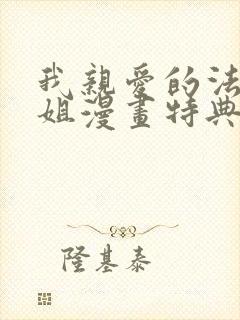 我親愛的法
姐漫畫特典
隆基泰